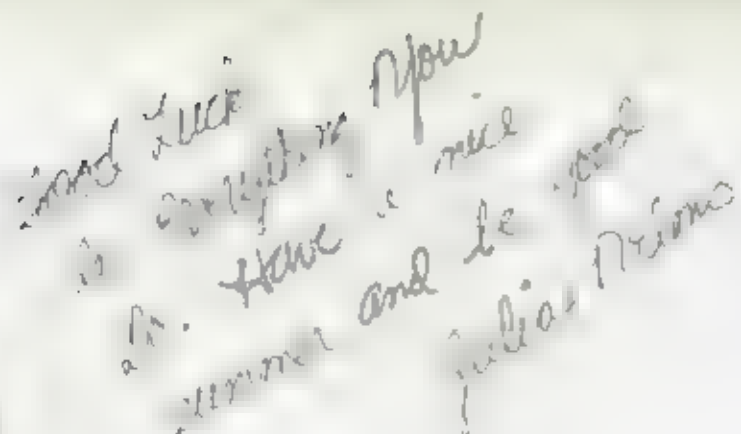 Good Luck
in everything You
do. Have a nice
summer and be good